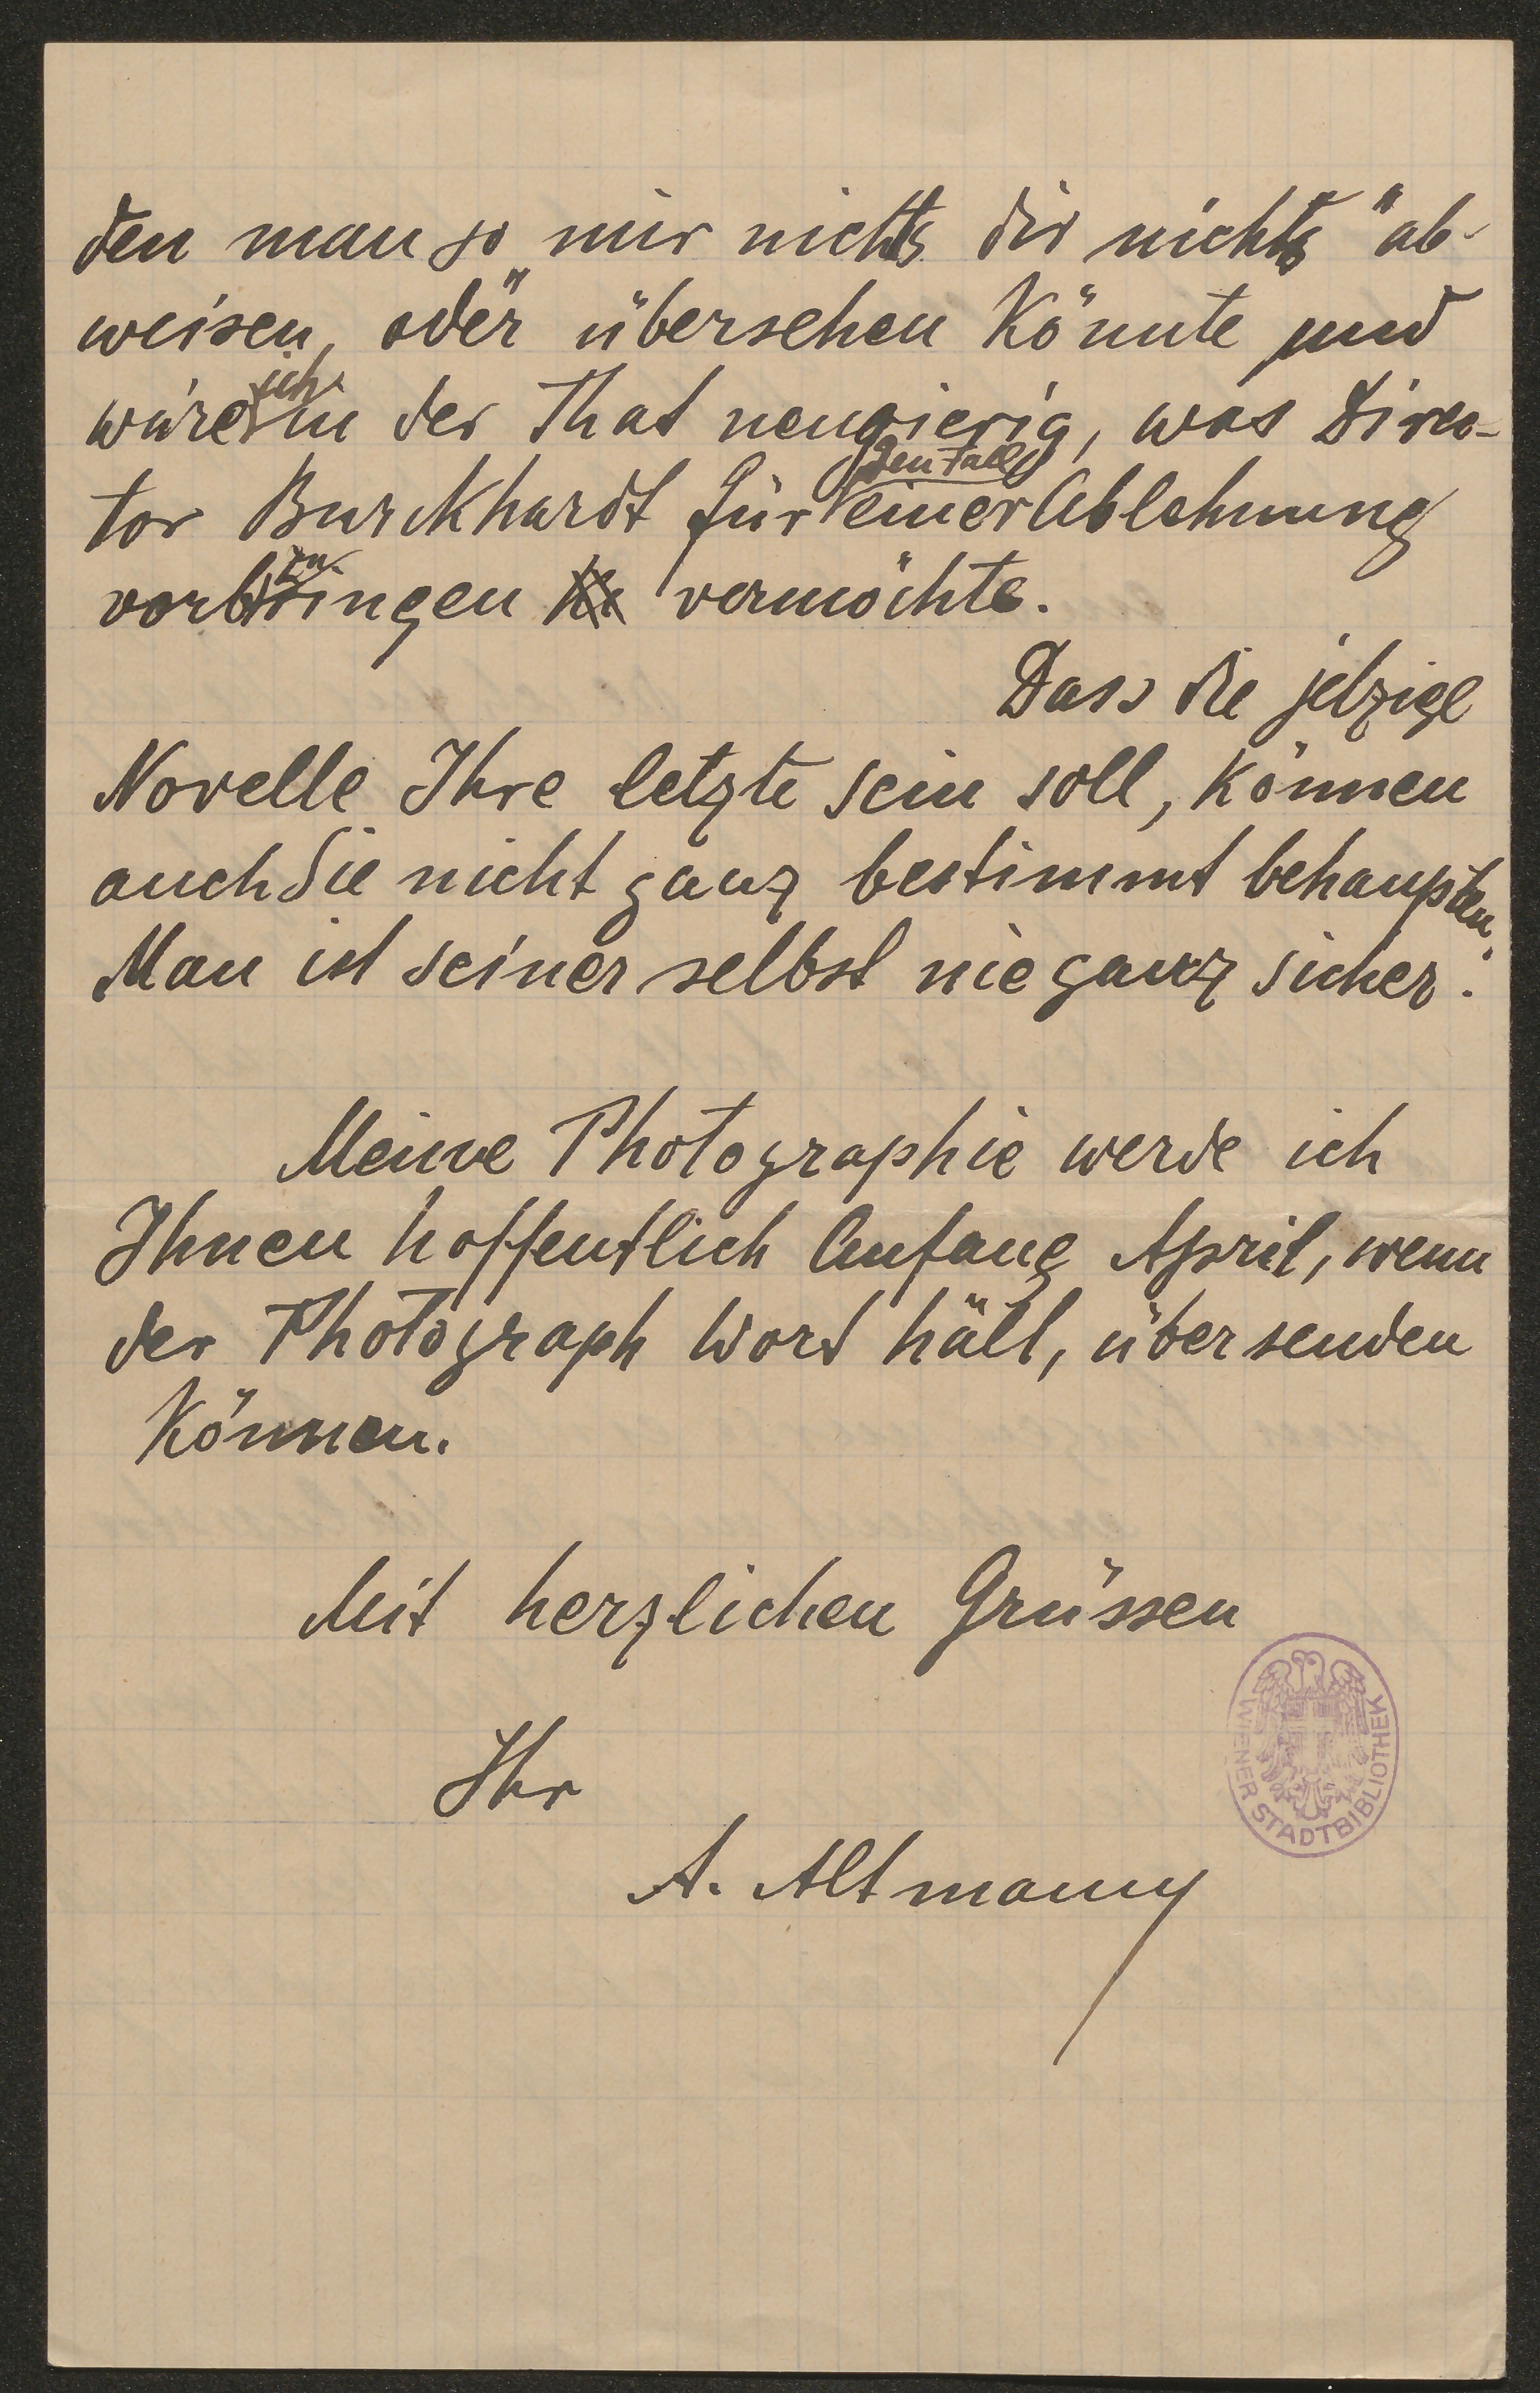 den man so mir nichts dir nichts "ab-
weisen, oder" übersehen könnte und
wäre ich in der That neugierig, was Direc-
tor Burckhardt für den Fall einer Ablehnung
vorzubringen vermöchte.
Dass die jetzige
Novelle Ihre letzte sein soll, können
auch Sie nicht ganz bestimmt behaupten.
Man ist seiner selbst nie ganz sicher.
Meine Photographie werde ich
Ihnen hoffentlich Anfang April, wenn
der Photograph Wort hält, übersenden
können.
Mit herzlichen Grüssen
Ihr
A. Altmann
WIENER STADTBIBLIOTHEK